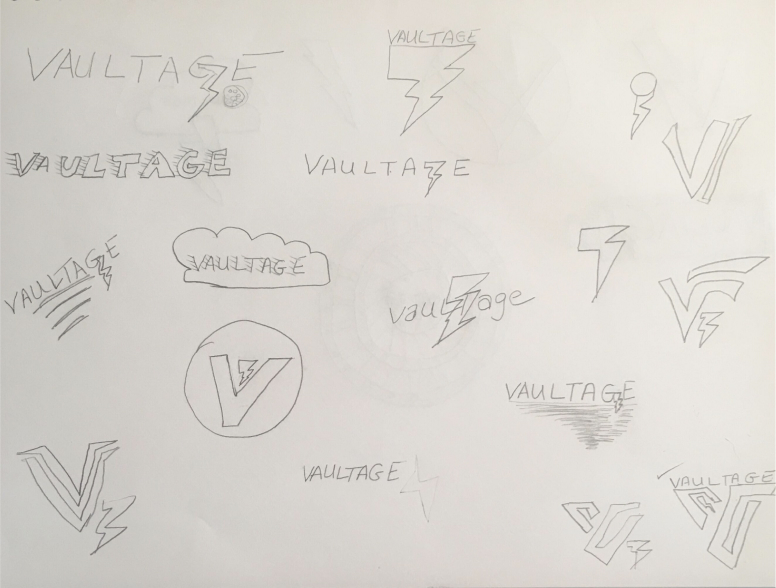 VAULTAGE
VAULTAGE
VAULTAGE
VAULTAGE
V
VAULTAGE
VAULTAGE
vaultage
V
V
VAULTAGE
V
VAULTAGE
VAULTAGE